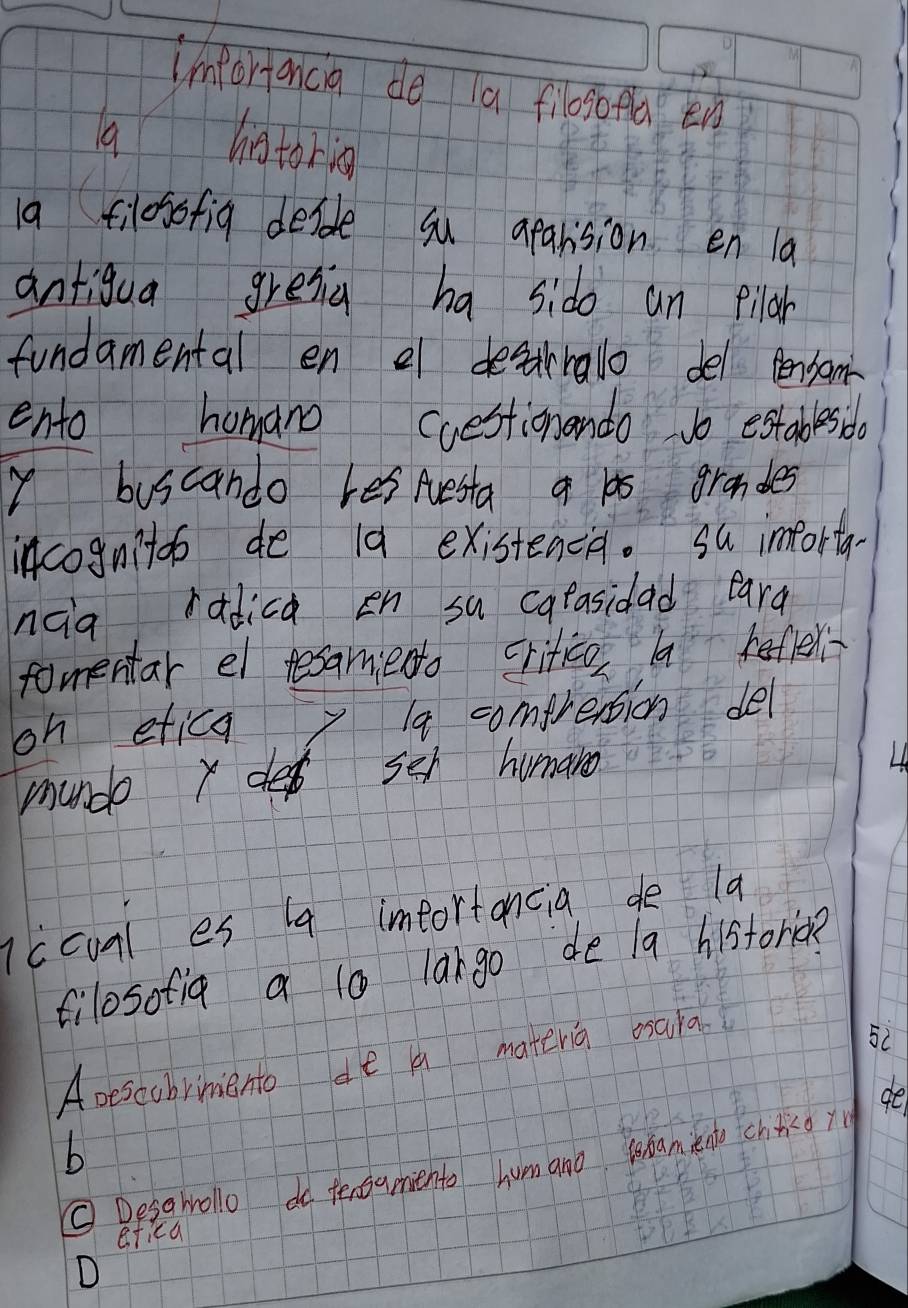 importancia de la filosofia en
la historia
la filosofia desde su aparision en la
antigua gresia ha sido un pilar
fundamental en el desarrallo del pensami-
ento homano cuestionando lo establesido
y buscando respuesta a las grandes
incognitas de la existencia. su importa-
ncia radica en su capasidad para
fomentar el pesamiento critico, la reflexi-
on etica y la comprension del
mundo y del ser humano
1 ¿cual es la importancia de la
filosofia a lo largo de la historia?
A Descubrimiento de la materia oscura
b
C Desarrollo de pensamiento humano pensamiento critico y
etica
D
si
de